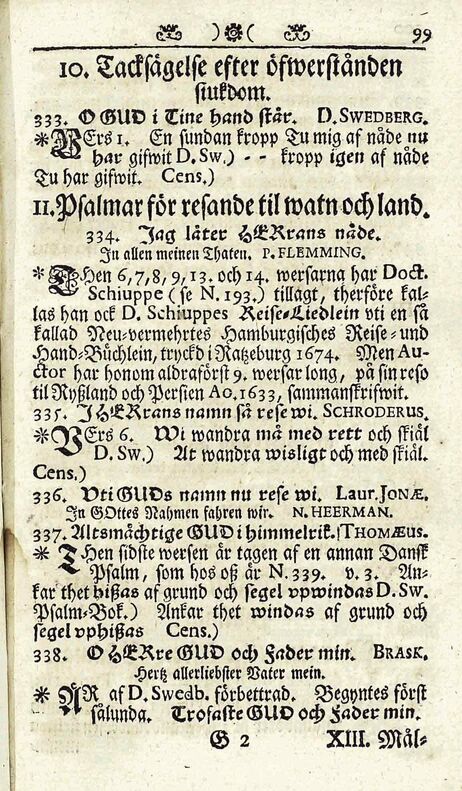 )❀( 99
10. Tacksägelse efter öfwerstånden
siukdom.
333. O GUD i Tine hand stär. D. SWEDBERG.
* VErs 1. En sundan kropp Tu mig af nåde nu
har gifwit D. Sw.) - - kropp igen af nåde
Tu har gifwit. Cens.)
11. Psalmar för resande til watn och land.
334. Jag låter HERrans nåde.
In allen meinen Thaten. P. FLEMMING.
* THen 6, 7, 8, 9, 13. och 14. wersarna har Doct.
Schiuppe (se N. 193.) tillagt, therföre kal-
las han ock D. Schiuppes Reise-Liedlein vti en så
kallad Neu-vermehrtes Hamburgisches Reise- und
Hand-Büchlein, tryckd i Ratzeburg 1674. Men Au-
ctor har honom aldraförst 9. wersar long, på sin reso
til Ryßland och Persien Ao. 1633, sammanskrifwit.
335. I HERrans namn så rese wi. SCHRODERUS.
* VErs 6. Wi wandra må med rett och skiäl
D. Sw.) At wandra wisligt och med skiäl.
Cens.)
336. Vti GUDs namn nu rese wi. Laur. JONÆ.
In GOttes Nahmen fahren wir. N. HEERMAN.
337. Altsmächtige GUD i himmelrik. THOMÆUS.
* THen sidste wersen är tagen af en annan Dansk
Psalm, som hos oß är N. 339. v. 3. An-
kar thet hißas af grund och segel vpwindas D. Sw.
Psalm-Bok.) Ankar thet windas af grund och
segel vphißas Cens.)
338. O HERre GUD och Fader min. BRASK.
Hertz allerliebster Vater mein.
* ÄR af D. Swedb. förbettrad. Begyntes först
sålunda. Trofaste GUD och Fader min.
G 2 XIII. Mål-